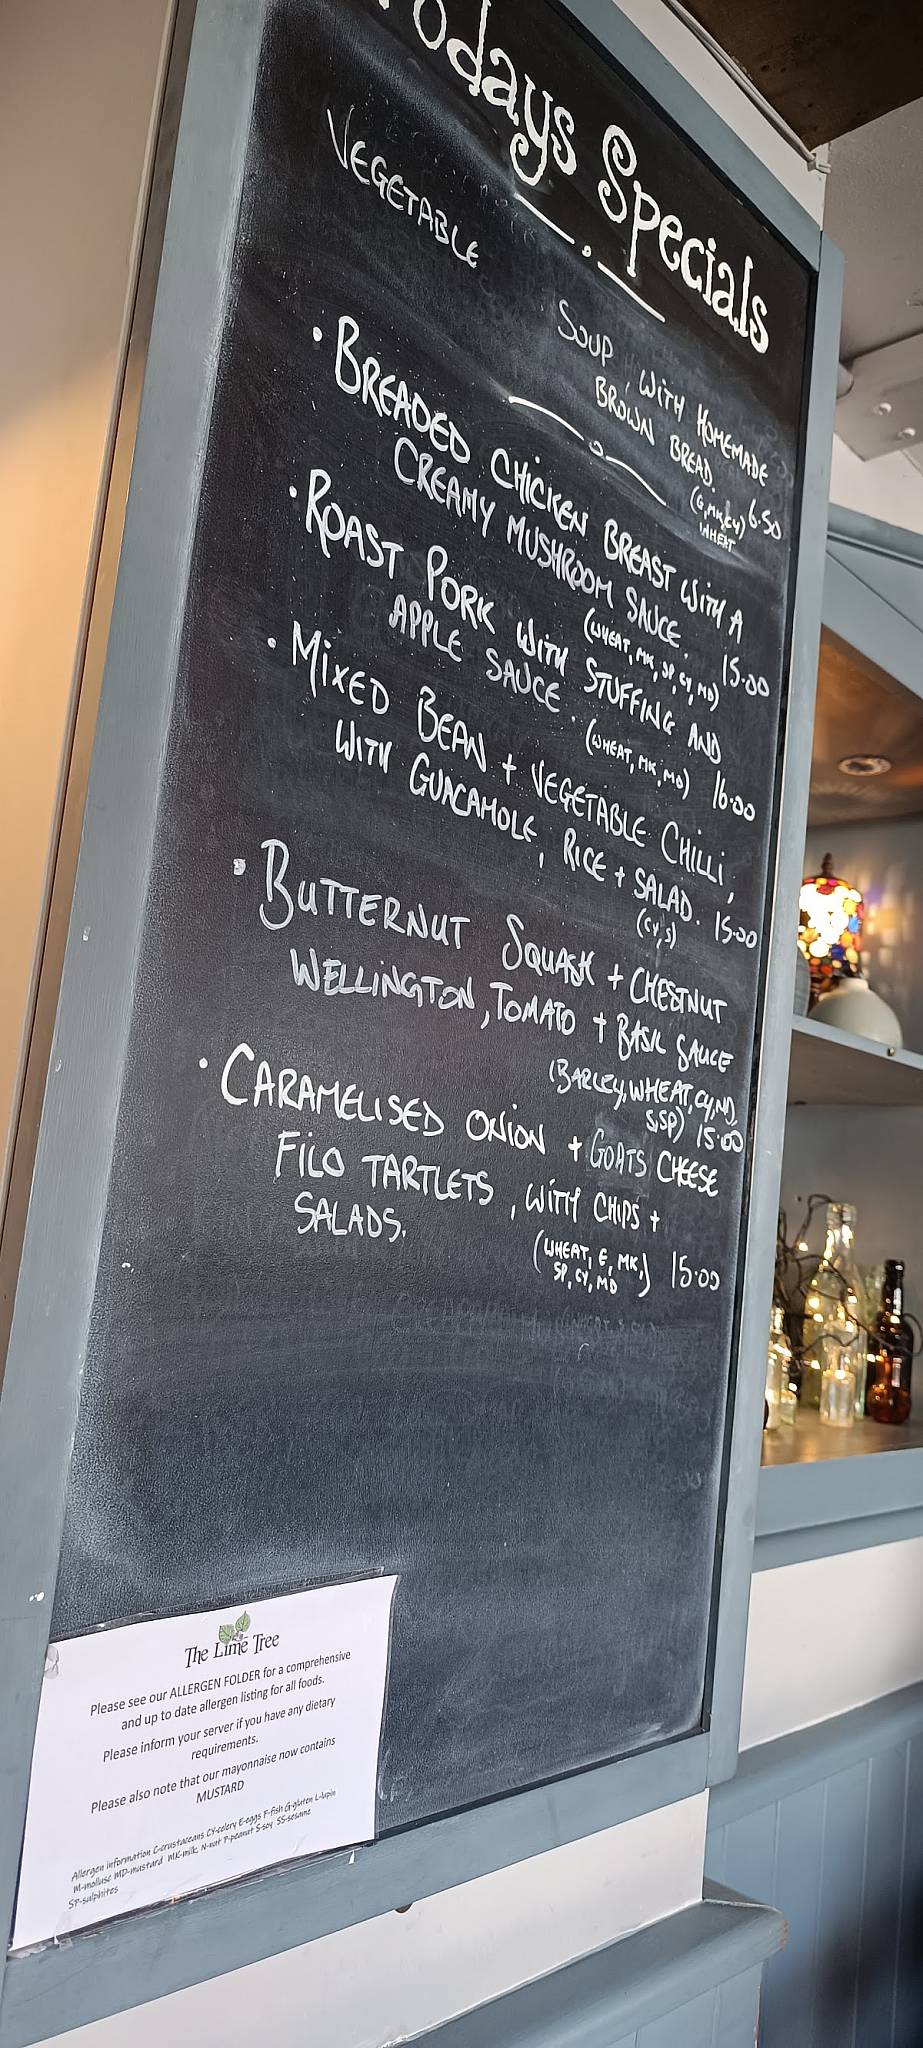 Todays Specials
VEGETABLE
SOUP, WITH HOMEMADE
BROWN BREAD. 6.50
(G, MK, CY)
WHEAT
• BREADED CHICKEN BREAST WITH A
CREAMY MUSHROOM SAUCE. 15.00
(WHEAT, MK, SP, CY, MD)
• ROAST PORK WITH STUFFING AND
APPLE SAUCE. (WHEAT, MK, MD) 16.00
• MIXED BEAN + VEGETABLE CHILLI,
WITH GUACAMOLE, RICE + SALAD. 15.00
(CY, S)
• BUTTERNUT SQUASH + CHESTNUT
WELLINGTON, TOMATO + BASIL SAUCE
(BARLEY, WHEAT, CY, MD,
S, SP) 15.00
• CARAMELISED ONION + GOATS CHEESE
FILO TARTLETS, WITH CHIPS +
SALADS. (WHEAT, E, MK, 15.00
SP, CY, MD)
The Lime Tree
Please see our ALLERGEN FOLDER for a comprehensive
and up to date allergen listing for all foods.
Please inform your server if you have any dietary
requirements.
Please also note that our mayonnaise now contains
MUSTARD
Allergen information C-crustaceans CY-celery E-eggs F-fish G-gluten L-lupin
M-mollusc MD-mustard MK-milk, N-nut P-peanut S-soy SS-sesame
SP-sulphites